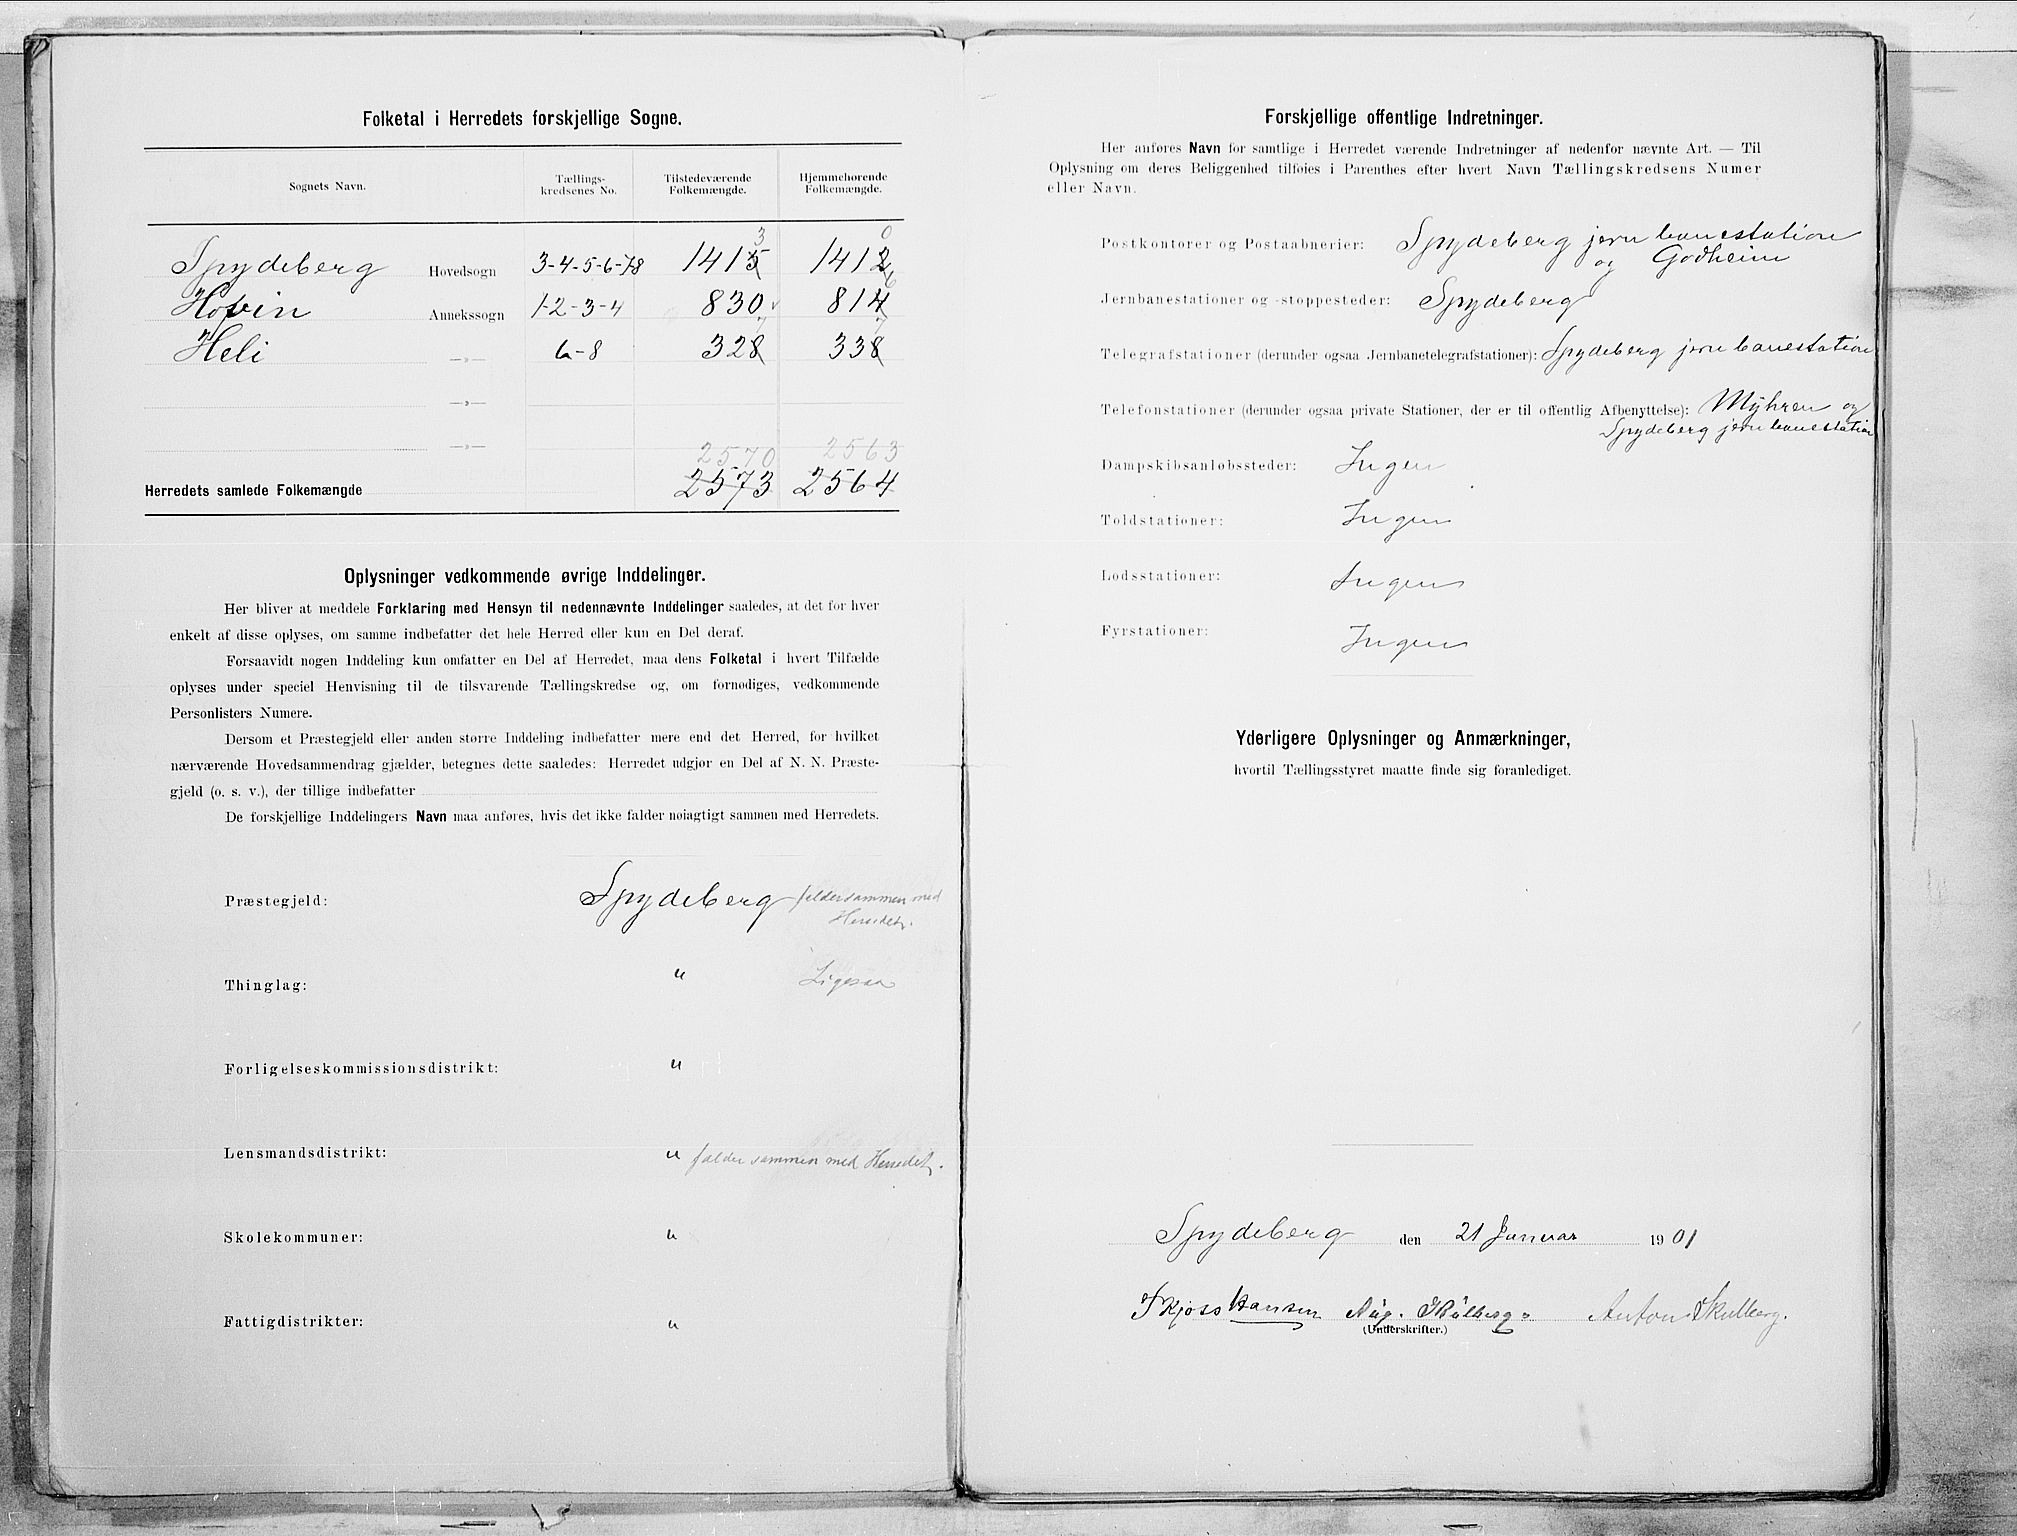 Folketal i Herredets forskjellige Sogne.
Sognets Navn. Tællings-kredsenes No. Tilstedeværende Folkemængde. Hjemmehørende Folkemængde.
3 0
Spydeberg Hovedsogn 3-4-5-6-7-8 1415 1412
6
Hovin Annekssogn 1-2-3-4 830 814
7 7
Heli —»— 6-8 328 338
—»—
—»—
2570 2563
Herredets samlede Folkemængde 2573 2564
Oplysninger vedkommende øvrige Inddelinger.
Her bliver at meddele Forklaring med Hensyn til nedennævnte Inddelinger saaledes, at det for hver
enkelt af disse oplyses, om samme indbefatter det hele Herred eller kun en Del deraf.
Forsaavidt nogen Inddeling kun omfatter en Del af Herredet, maa dens Folketal i hvert Tilfælde
oplyses under speciel Henvisning til de tilsvarende Tællingskredse og, om fornødiges, vedkommende
Personlisters Numere.
Dersom et Præstegjeld eller anden større Inddeling indbefatter mere end det Herred, for hvilket
nærværende Hovedsammendrag gjælder, betegnes dette saaledes: Herredet udgjør en Del af N. N. Præste-
gjeld (o. s. v.), der tillige indbefatter
De forskjellige Inddelingers Navn maa anføres, hvis det ikke falder nøiagtigt sammen med Herredets.
Præstegjeld: Spydeberg falder sammen med
Herredet.
Thinglag: " Ligesaa
Forligelseskommissionsdistrikt: "
Lensmandsdistrikt: " falder sammen med Herredet.
Skolekommuner: "
Fattigdistrikter: "
Forskjellige offentlige Indretninger.
Her anføres Navn for samtlige i Herredet værende Indretninger af nedenfor nævnte Art. — Til
Oplysning om deres Beliggenhed tilføies i Parenthes efter hvert Navn Tællingskredsens Numer
eller Navn.
Postkontorer og Postaabnerier: Spydeberg jernbanestation
og Godheim
Jernbanestationer og -stoppesteder: Spydeberg
Telegrafstationer (derunder ogsaa Jernbanetelegrafstationer): Spydeberg jernbanestation
Telefonstationer (derunder ogsaa private Stationer, der er til offentlig Afbenyttelse): Myhren og
Spydeberg jernbanestation
Dampskibsanløbssteder: Ingen
Toldstationer: Ingen
Lodsstationer: Ingen
Fyrstationer: Ingen
Yderligere Oplysninger og Anmærkninger,
hvortil Tællingsstyret maatte finde sig foranlediget.
Spydeberg den 21 Januar 1901
Skjøsshansen Aug. Skulberg Anton Skulberg.
(Underskrifter.)